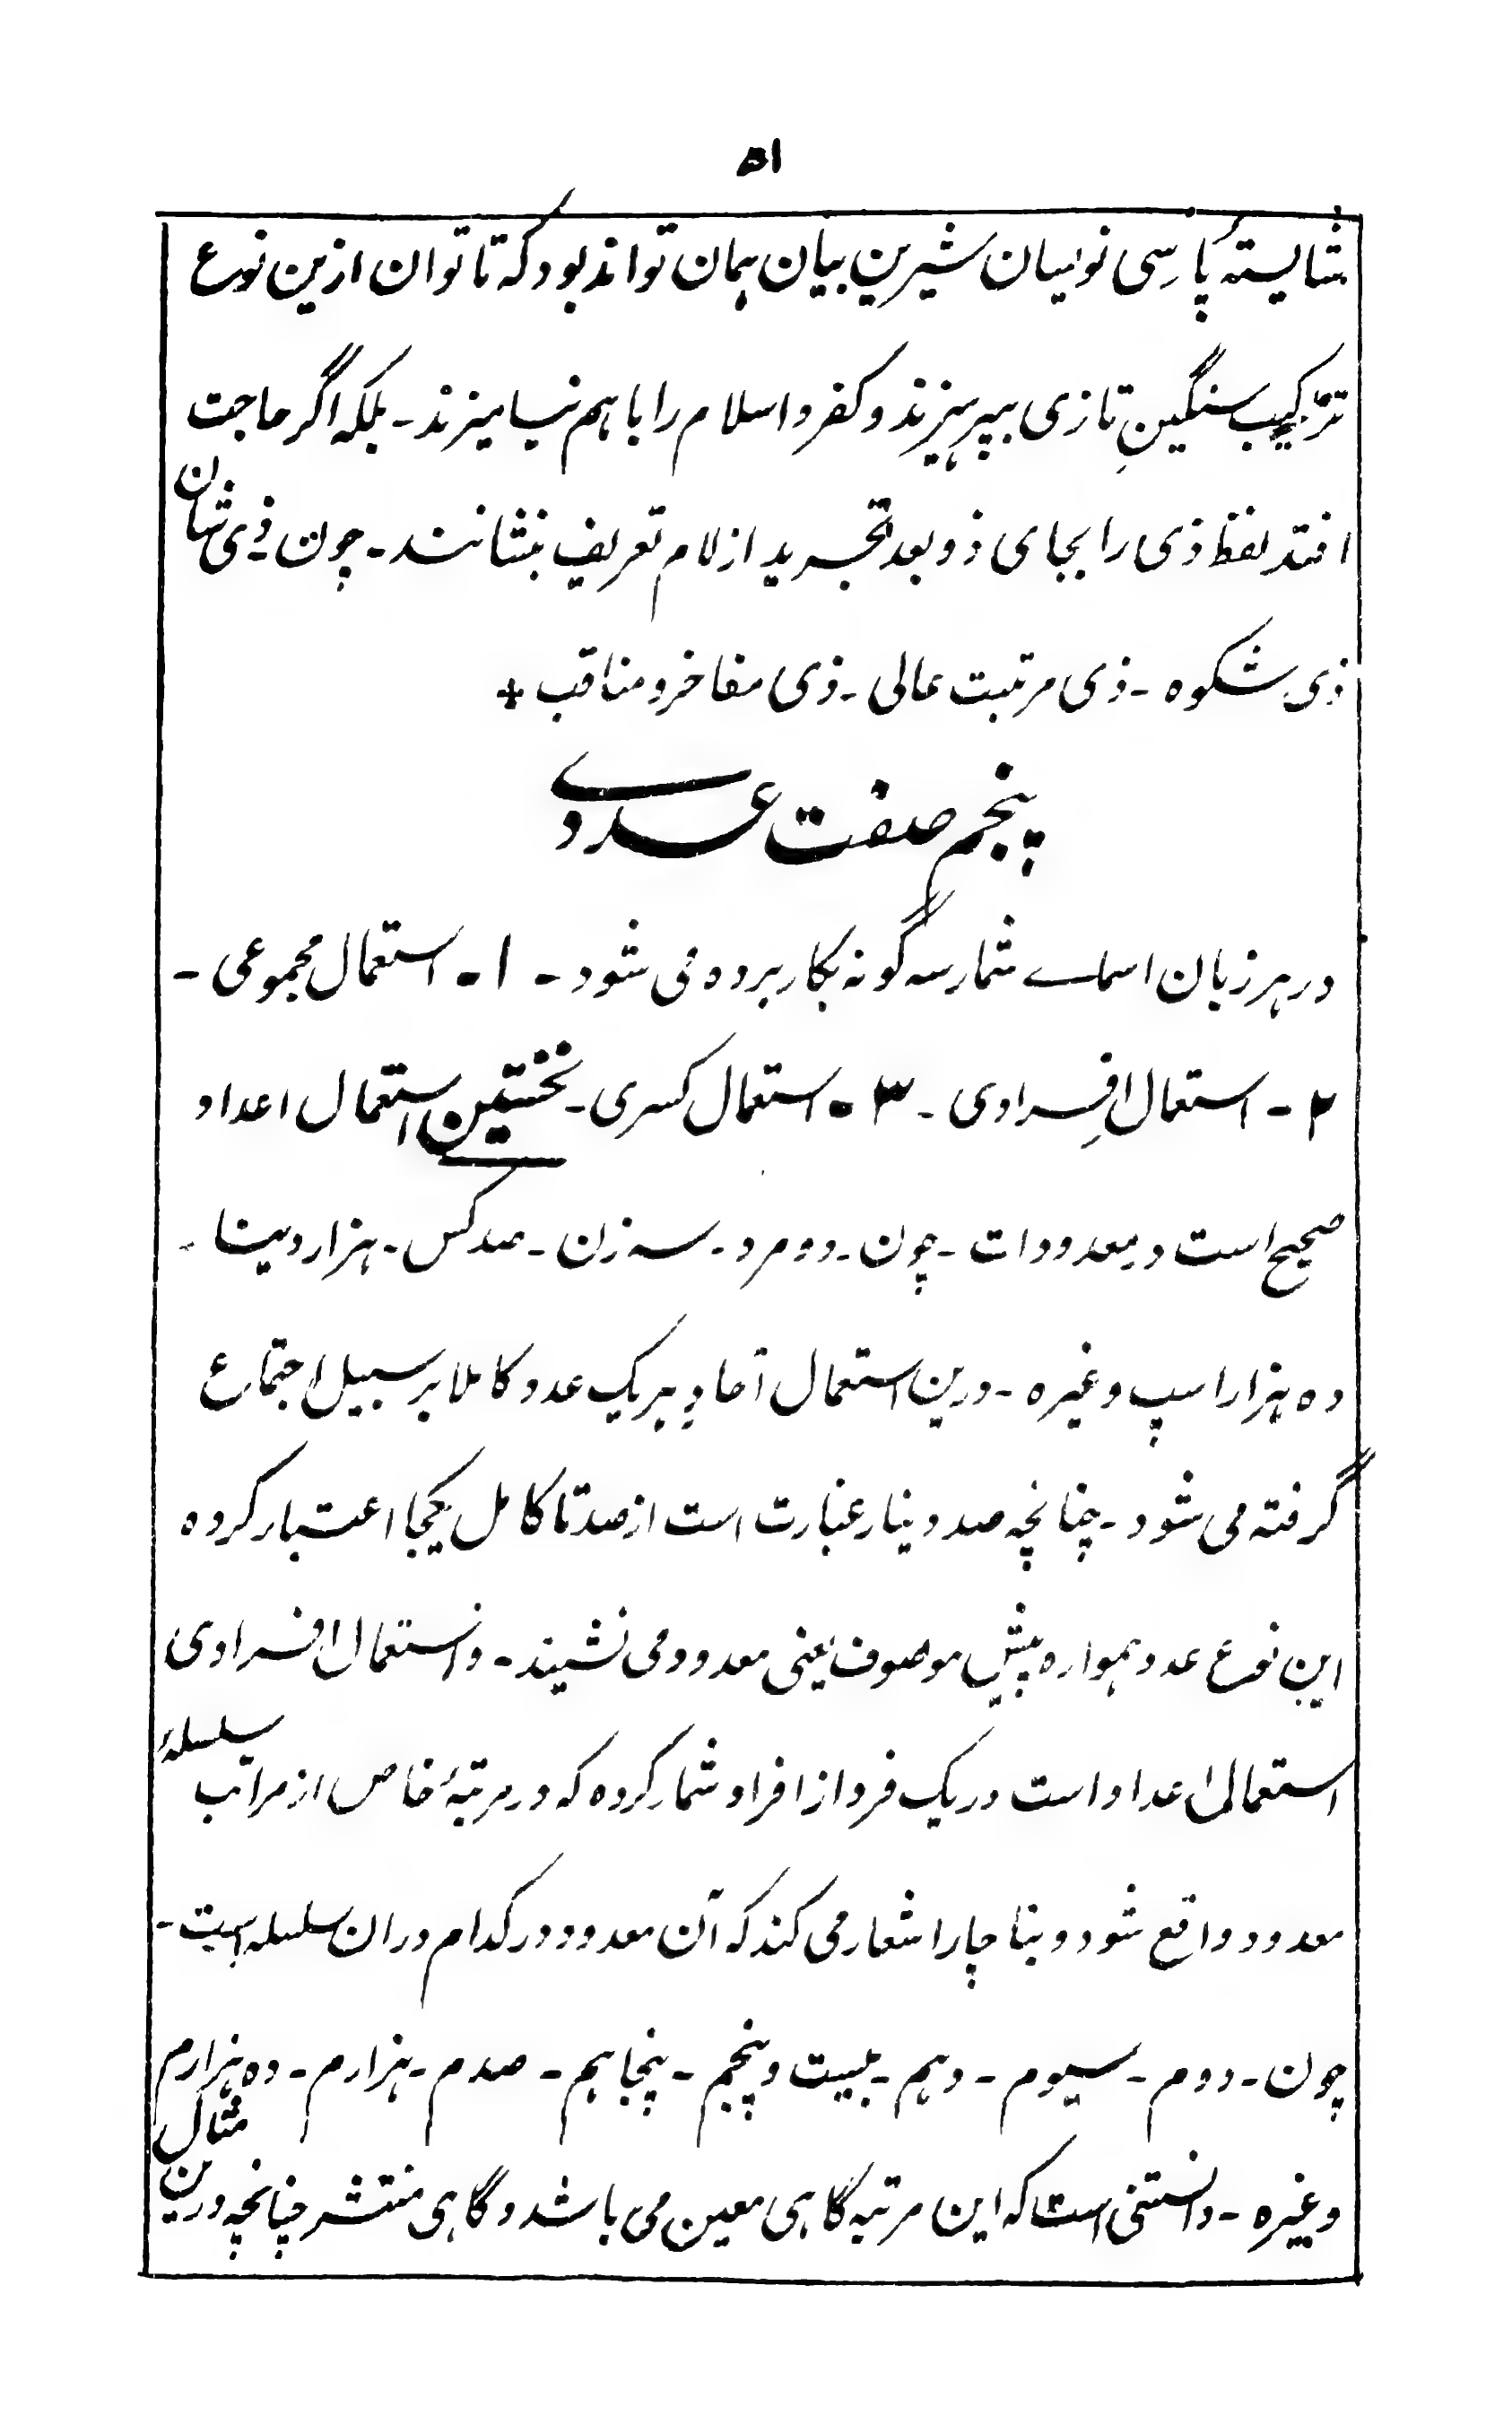 ۵۱
شایستهٔ پارسی نویسان شیرین بیان همان تواند بود که تا توان ازین نوع
ترکیب سنگینِ تازی بپرهیزند و کفر و اسلام را با هم نیامیزند - بلکه اگر حاجت
افتد لفظ ذی را بجای ذو بعد تجرید از لام تعریف بنشانند - چون ذی شان
ذی شکوه - ذی مرتبت عالی - ذی مفاخر و مناقب +
پنجم صفت عددے
در هر زبان اسماے شمار سه گونه بکار برده می شود - ۱ - استعمال مجموعی -
۲ - استعمال اِفرادی - ۳ - استعمال کسری - نخستین استعمال اعداد
صحیح است در معدودات - چون - دو مرد - سه زن - صد کس - هزار دینار -
ده هزار اسپ و غیره - درین استعمال آحادِ هر یک عدد کاملا بر سبیل اجتماع
گرفته می شود - چنانچه صد دینار عبارت است از صد تا کامل یکجا اعتبار کرده
این نوع عدد همواره پیشِ موصوف یعنی معدود می نشیند - و استعمال افرادی
استعمال اعداد است در یک فرد از افراد شمار کرده که در مرتبهٔ خاص از مراتب سلسلهٔ
معدود واقع شود و بناچار اشعار می کند که آن معدود در کدام دران سلسله است -
چون - دوم - سیوم - دهم - بیست و پنجم - پنجاهم - صدم - هزارم - ده هزارم
و غیره - دانستنی است که این مرتبه گاهی معین می باشد و گاهی منتشر چنانچه درین مثال